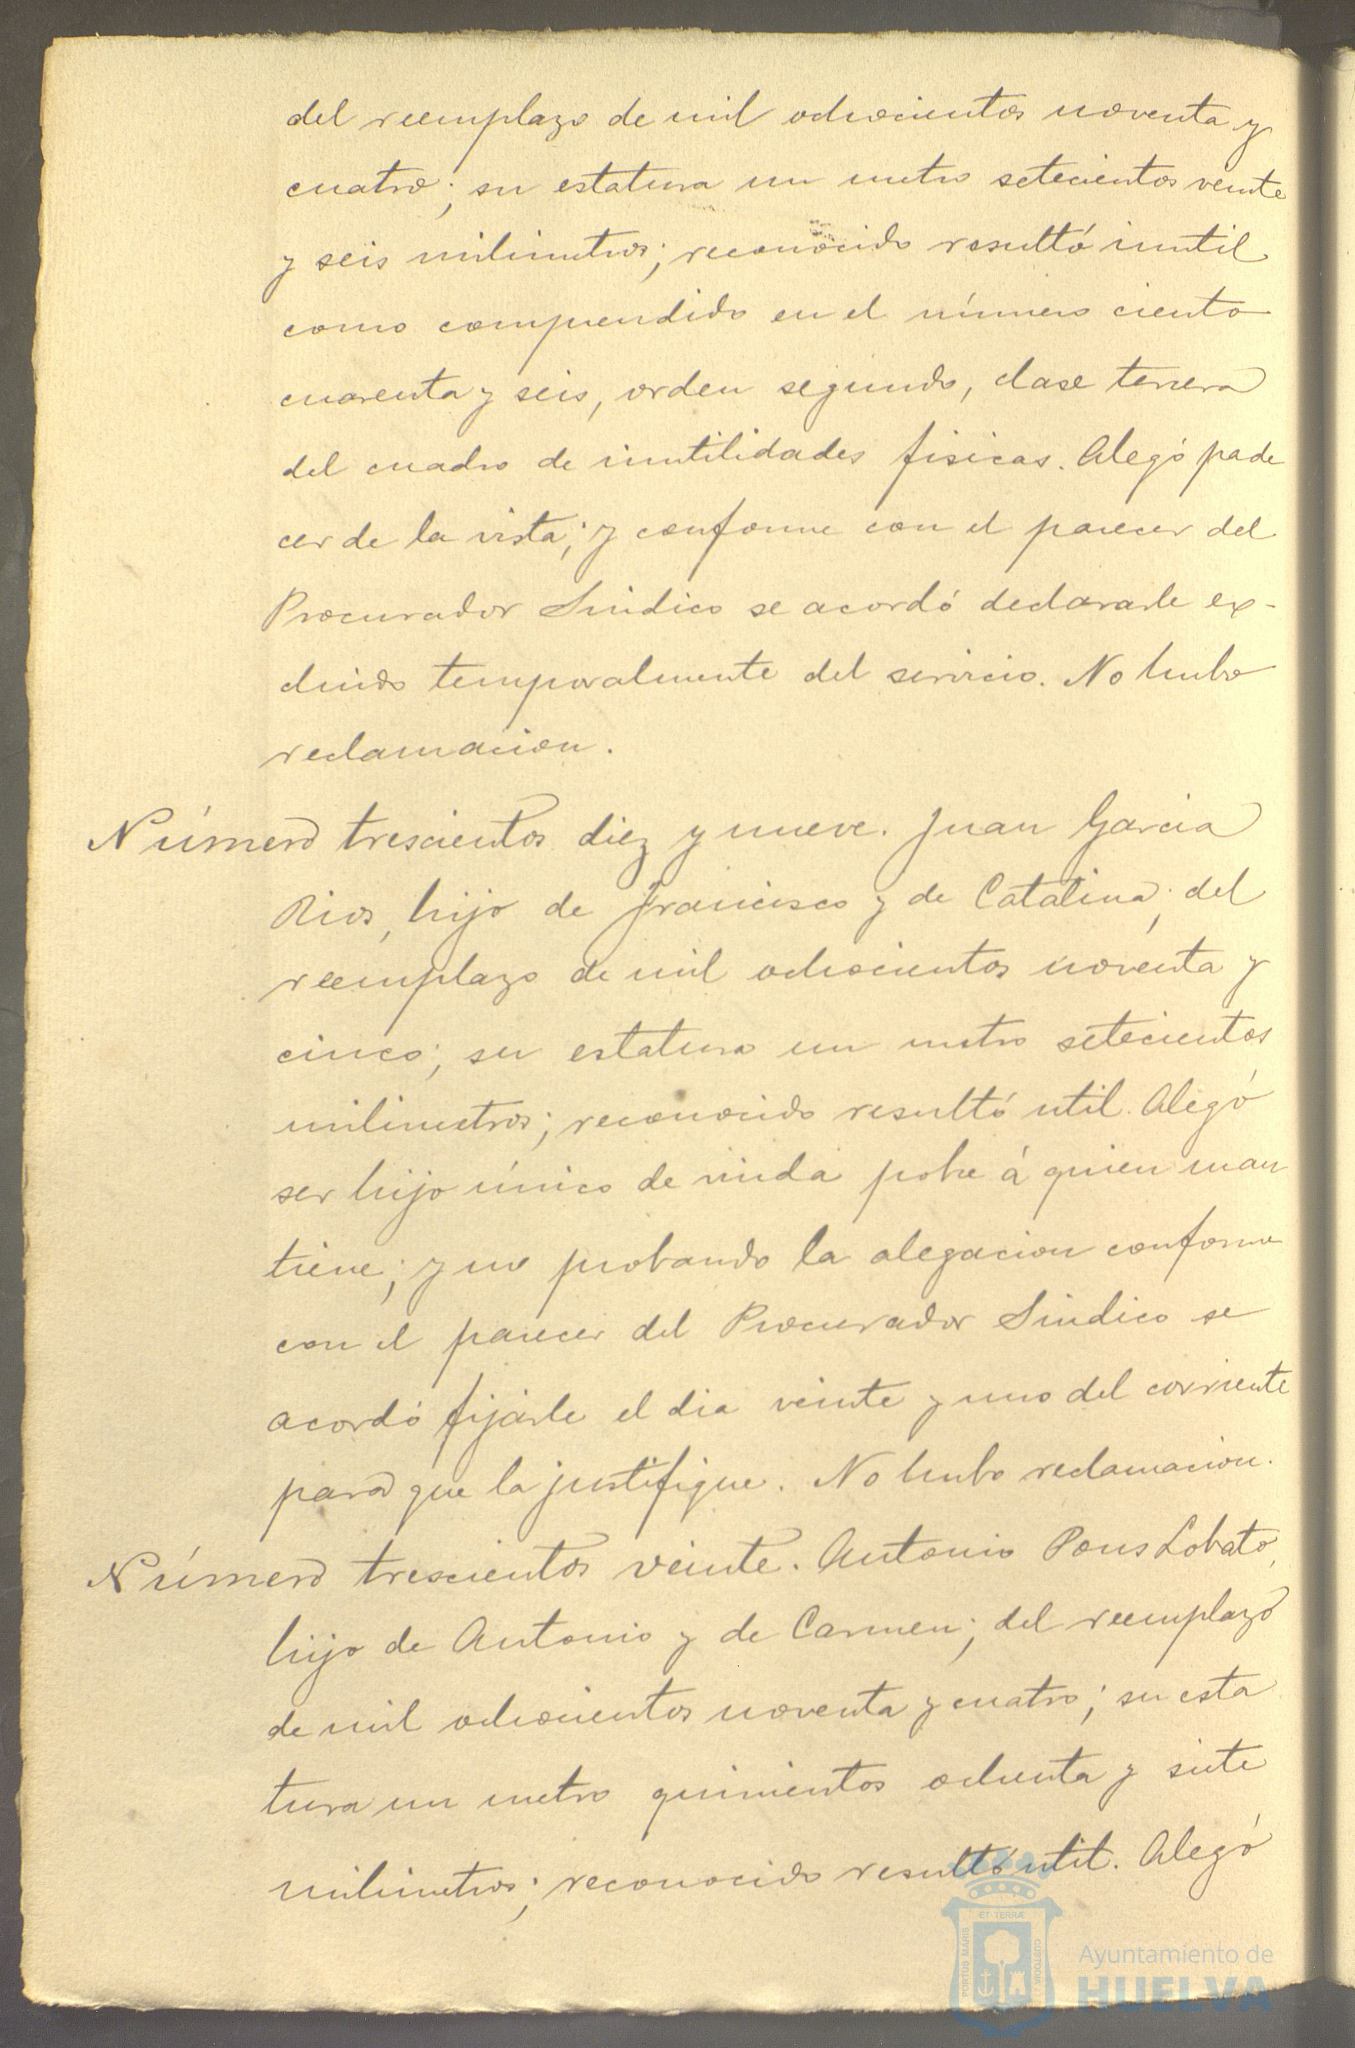 del reemplazo de mil ochocientos noventa y
cuatro; su estatura un metro setecientos veinte
y seis milimetros; reconocido resultó inutil
como comprendido en el número ciento
cuarenta y seis, orden segundo, clase tercera
del cuadro de inutilidades fisicas. Alegó pade
cer de la vista; y conforme con el parecer del
Procurador Sindico se acordó declararle ex-
cluido temporalmente del servicio. No hubo
reclamacion.
Número trescientos diez y nueve. Juan Garcia
Rios, hijo de Francisco y de Catalina; del
reemplazo de mil ochocientos noventa y
cinco; su estatura un metro setecientos
milimetros; reconocido resultó util. Alegó
ser hijo único de viuda pobre á quien man
tiene; y no probando la alegacion conforme
con el parecer del Procurador Sindico se
acordó fijarle el dia veinte y uno del corriente
para que la justifique. No hubo reclamacion.
Número trescientos veinte. Antonio Pons Lobato,
hijo de Antonio y de Carmen; del reemplazo
de mil ochocientos noventa y cuatro; su esta
tura un metro quinientos ochenta y siete
milimetros; reconocido resultó util. Alegó
PORTUS MARIS ET TERRÆ CUSTODIA
Ayuntamiento de
HUELVA